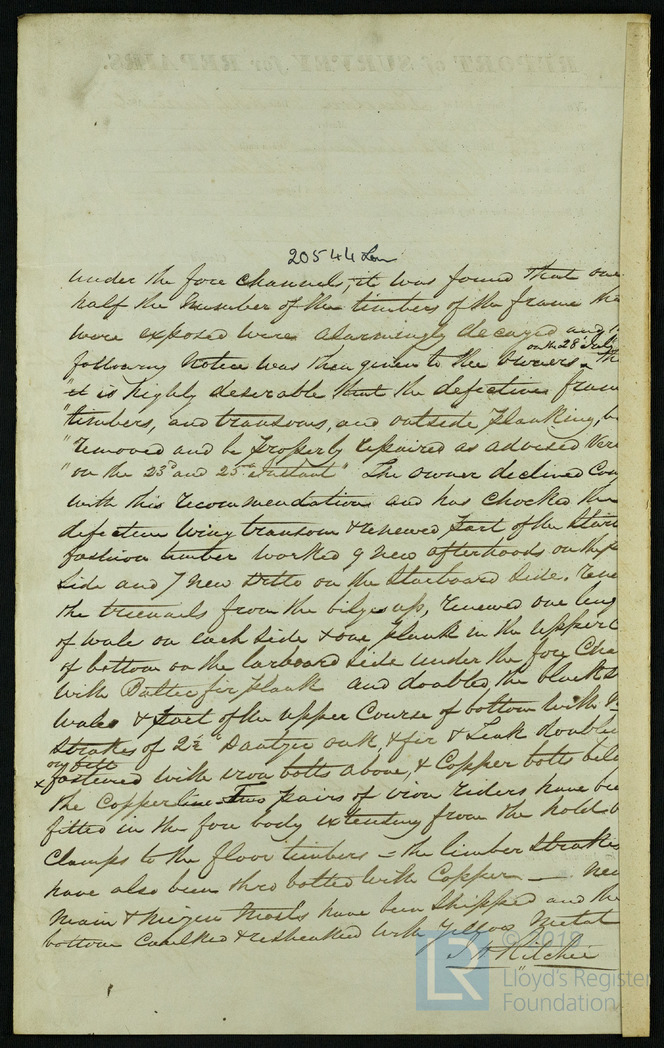 20544 Lon
under the fore channel, it was found that one
half the number of the timbers of the frame
were exposed were alarmingly decayed and
on the 28 July
following Notice was then given to the Owners
"it is highly desirable that the defective fram
"timbers, and transoms, and outside planking, b
"removed and be properly repaired as advised
"on the 23d and 25th Instant" The owner declined Com
with this recommendation and has chocked the
defective wing transom & renewed part of the Star
fashion timber worked 9 new afterhoods on the
side and 7 new ditto on the Starboard Side. rene
the treenails from the bilge up, renewed one leng
of wale on each side & one plank in the upper C
of bottom on the larboard side under the fore Cha
with Baltic fir plank and doubled the black
wales & part of the upper Course of bottom with
Strakes of 2½ Dantzic oak, & fir & Teak doubly
fastened with iron bolts above, & Copper bolts bel
the Copper line Two pairs of iron riders have be
fitted in the fore body extending from the hold b
Clamps to the floor timbers = the limber Strakes
have also been thro bolted with Copper — New
Main & Mizen Masts have been Shipped and the
bottom Caulked & resheathed with Yellow Metal
Ritchie
© 2019
LR
Lloyd's Register
Foundation
REPORT of SURVEY for REPAIRS.